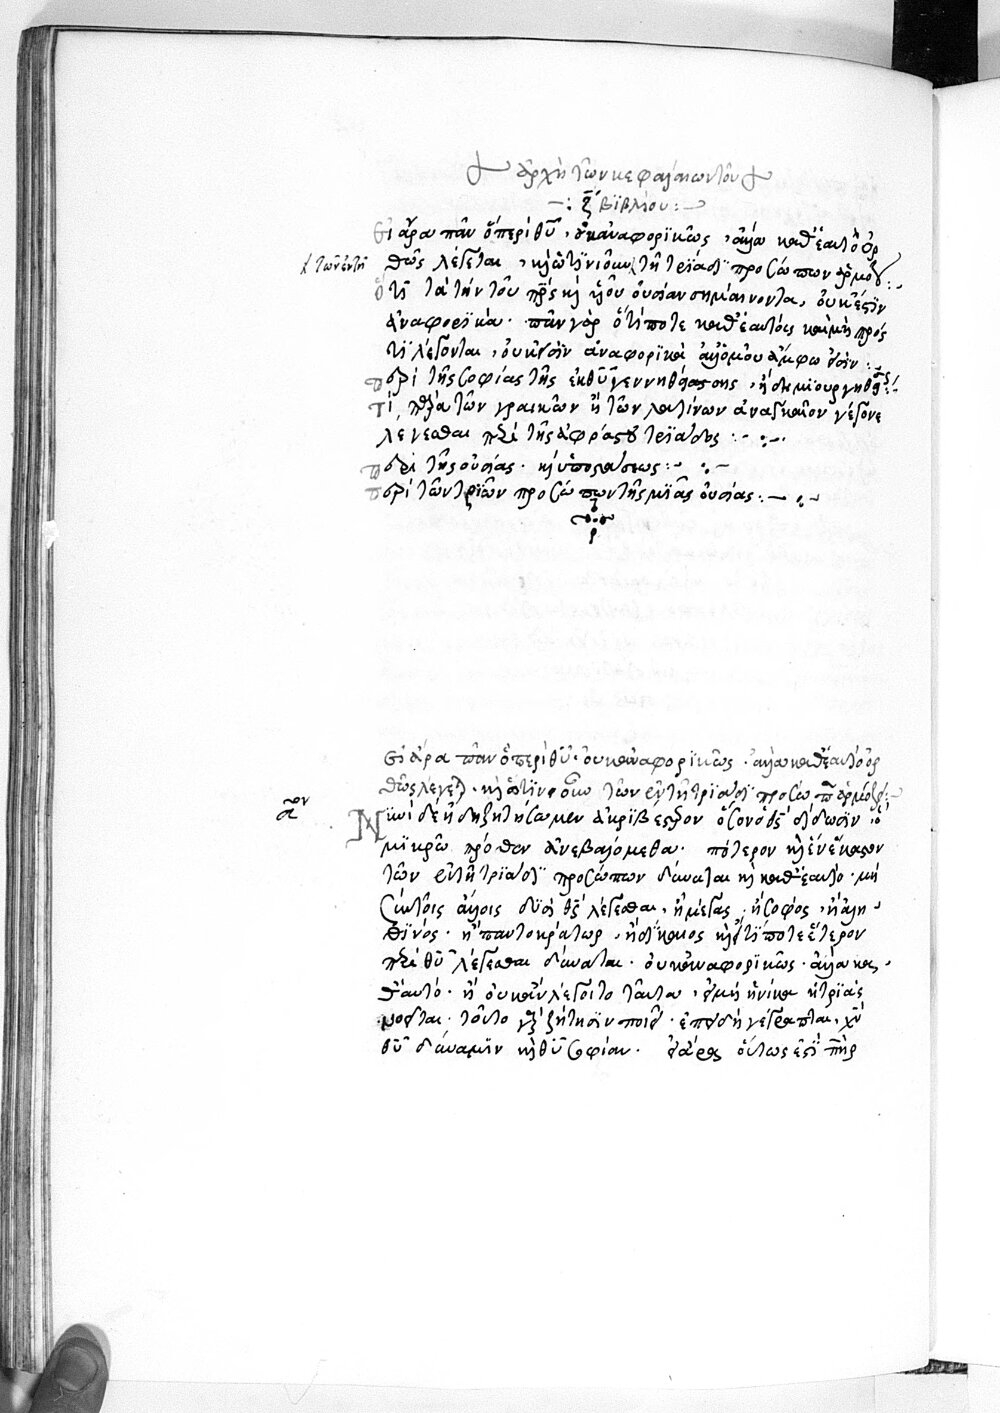 ἀρχὴ τῶν κεφαλαίων τοῦ
ξ̄ βιβλίου:
Εἰ ἆρα πᾶν ὅπερ ἐπὶ θ̅υ̅, οὐκ ἀναφορικῶς, ἀλλὰ καθ' ἑαυτὸ ὀρ
τῶν ἐν τῇ
θῶς λέγεται, καὶ τῇ τριάδι προσώπων ἁρμόζει:
ὅτι τὰ τὴν τοῦ π̅ρ̅ς̅ καὶ υἱοῦ οὐσίαν σημαίνοντα, οὐκ ἔστιν
ἀναφορικά. πᾶν γὰρ ὅτι ποτε καθ' ἑαυτὸ καὶ μὴ πρός
τι λέγονται, οὐκ ἀναφορικὰ ἀλλ' ὁμοῦ ἄμφω εἰσίν:
περὶ τῆς σοφίας τῆς ἐκ θ̅υ̅ γεννηθείσης, ἢ δημιουργηθείσης:
τί παρὰ τῶν γραικῶν ἢ τῶν λατίνων ἀναγκαῖον γέγονε
λέγεσθαι περὶ τῆς ἀφράστου τριάδος:
περὶ τῆς οὐσίας. καὶ ὑποστάσεως:
περὶ τῶν τριῶν προσώπων τῆς μιᾶς οὐσίας:
Εἰ ἆρα πᾶν ὅπερ ἐπὶ θ̅υ̅ οὐκ ἀναφορικῶς. ἀλλὰ καθ' ἑαυτὸ ὀρ
θῶς λέγεται. τῶν ἐν τῇ τριάδι προσώπων ἁρμόζει:
α̅ον
Νυνὶ δὲ ἤδη ζητήσωμεν ἀκριβέστερον ὅσον ὁ θ̅ς̅ δίδωσιν ὃ
μικρῷ πρόσθεν ἀνεβαλόμεθα. πότερον καὶ ἓν ἕκαστον
τῶν ἐν τῇ τριάδι προσώπων δύναται καὶ καθ' ἑαυτὸ. μὴ
σὺν τοῖς ἄλλοις δυσὶ θ̅ς̅ λέγεσθαι, ἢ μέγας, ἢ σοφός, ἢ ἀλη
θινός. ἢ παντοκράτωρ, ἢ δίκαιος καὶ εἴ τι ποτε ἕτερον
περὶ θ̅υ̅ λέγεσθαι δύναται. οὐκ ἀναφορικῶς. ἀλλὰ κα
θ' αὑτό. ἢ οὐκ ἂν λέγοιτο ταῦτα, εἰ μὴ ἡνίκα ἡ τριὰς
νοεῖται. τοῦτο γὰρ ζήτησιν ποιεῖ. ἐπειδὴ γέγραπται, χ̅ν̅
θ̅υ̅ δύναμιν καὶ θ̅υ̅ σοφίαν. εἰ ἆρα οὕτως ἐστὶ π̅η̅ρ̅